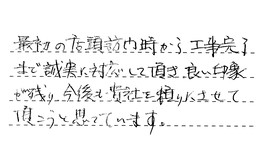 最初の店頭訪問時から工事完了
まで誠実に対応して頂き良い印象
が残り今後も貴社を頼りにさせて
頂こうと思っています。